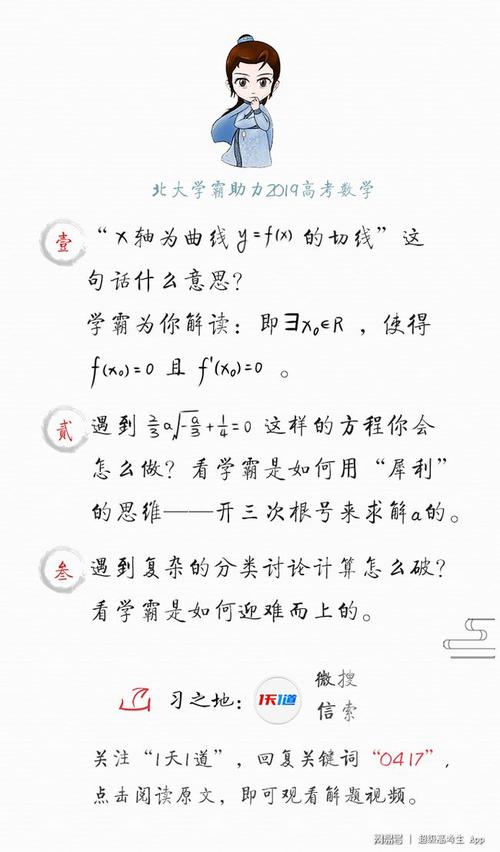 北大学霸助力2019高考数学
壹 “x轴为曲线y=f(x)的切线”这
句话什么意思？
学霸为你解读：即∃x₀∈R，使得
f(x₀)=0且f'(x₀)=0。
贰 遇到2/3a√-a/3+1/4=0这样的方程你会
怎么做？看学霸是如何用“犀利”
的思维——开三次根号来求解a的。
叁 遇到复杂的分类讨论计算怎么破？
看学霸是如何迎难而上的。
习之地：1天1道 微信搜索
关注“1天1道”，回复关键词“0417”，
点击阅读原文，即可观看解题视频。
网易号 | 超级高考生 App